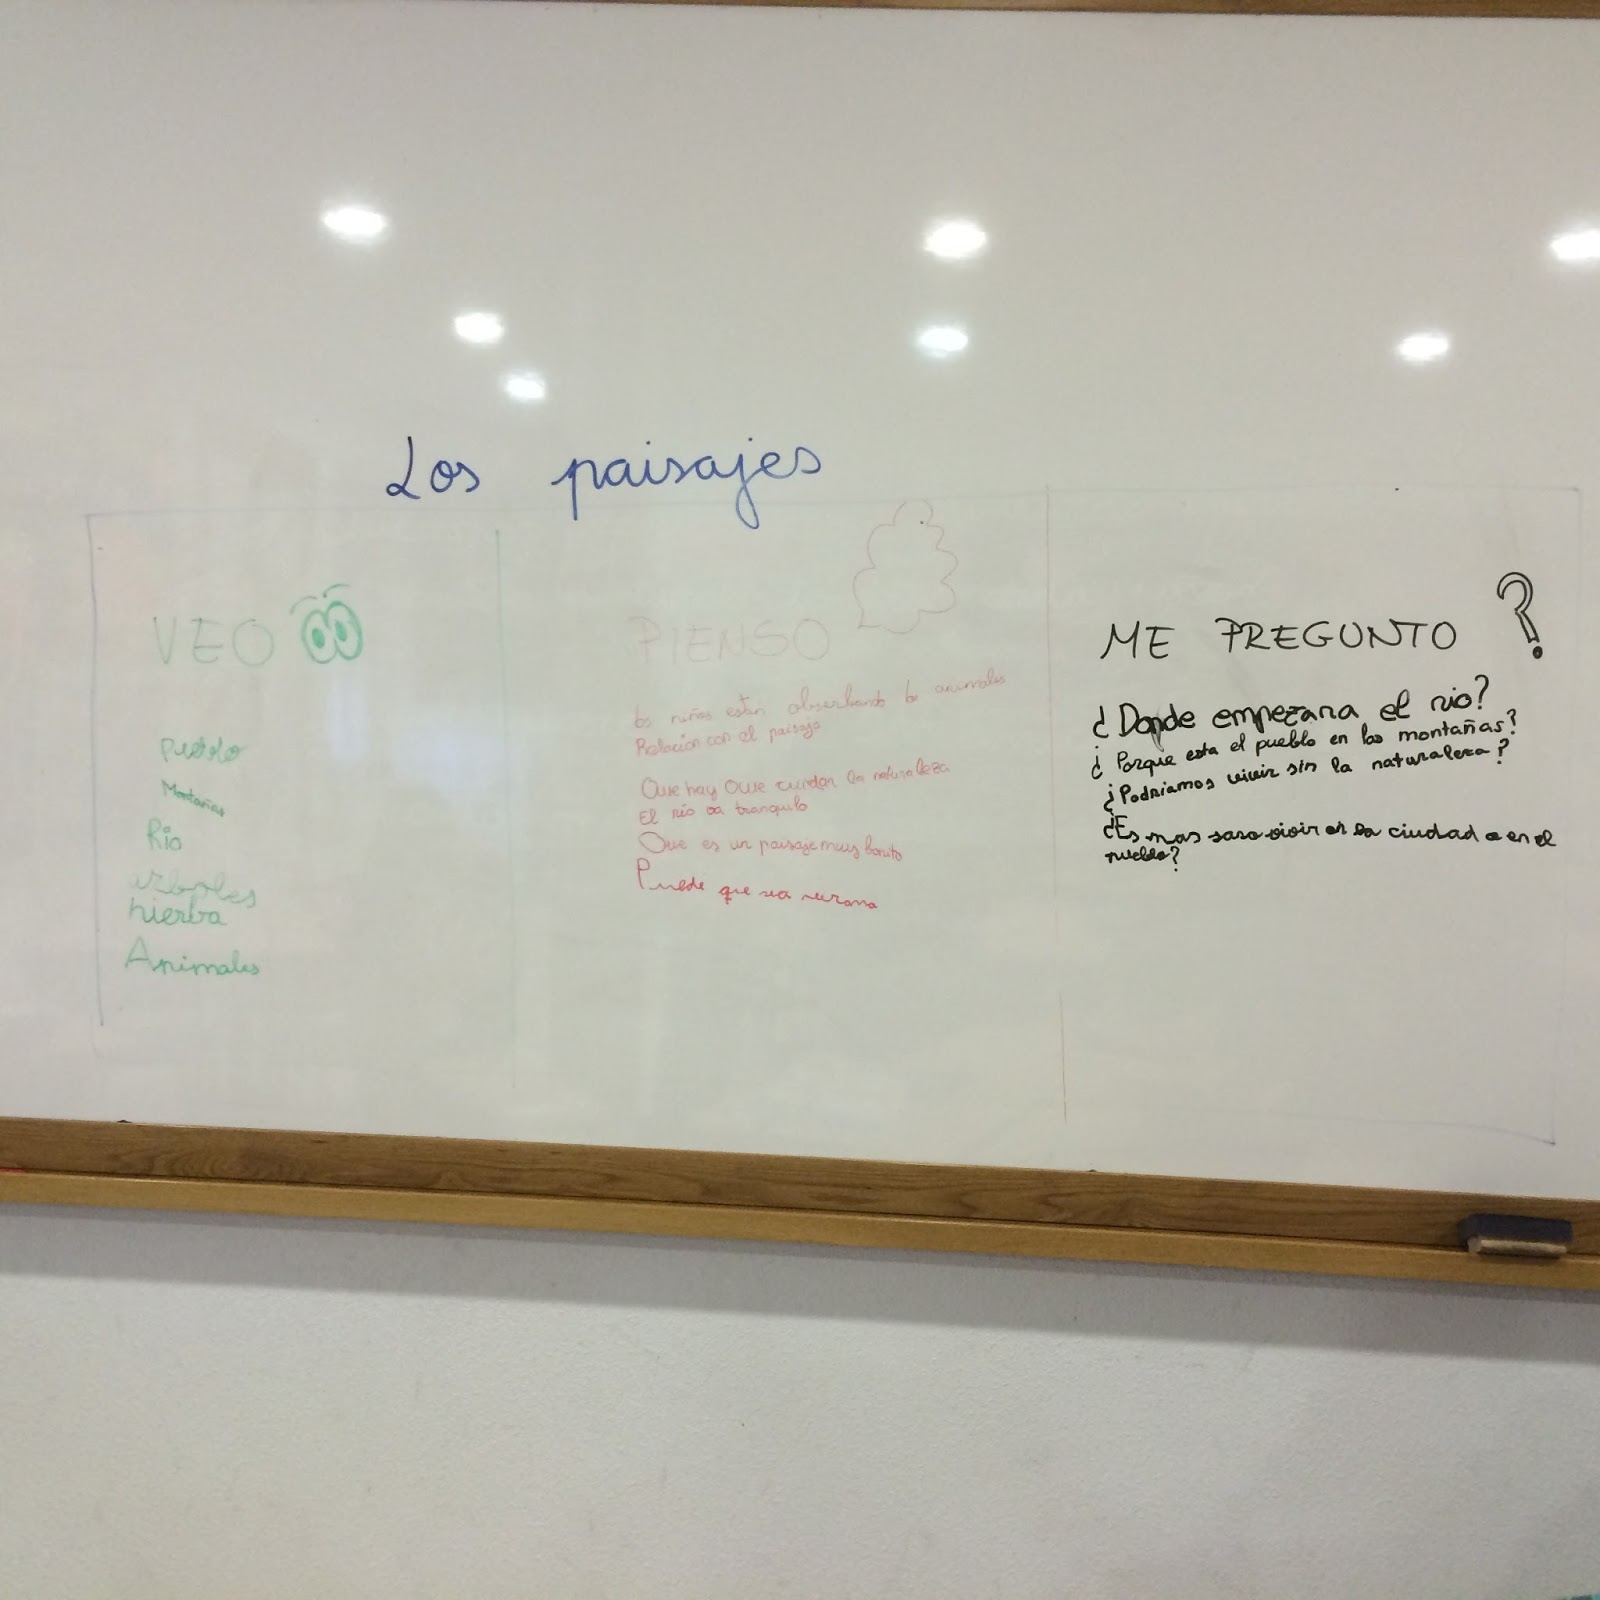 Los paisajes
VEO
pueblo
Montañas
Río
arboles
hierba
Animales
PIENSO
los niños están observando los animales
Relación con el paisaje
Que hay que cuidar la naturaleza
El río va tranquilo
Que es un paisaje muy bonito
Puede que sea verano
ME PREGUNTO ?
¿Donde empezara el rio?
¿Porque esta el pueblo en las montañas?
¿Podriamos vivir sin la naturaleza?
¿Es mas sano vivir en la ciudad o en el
pueblo?